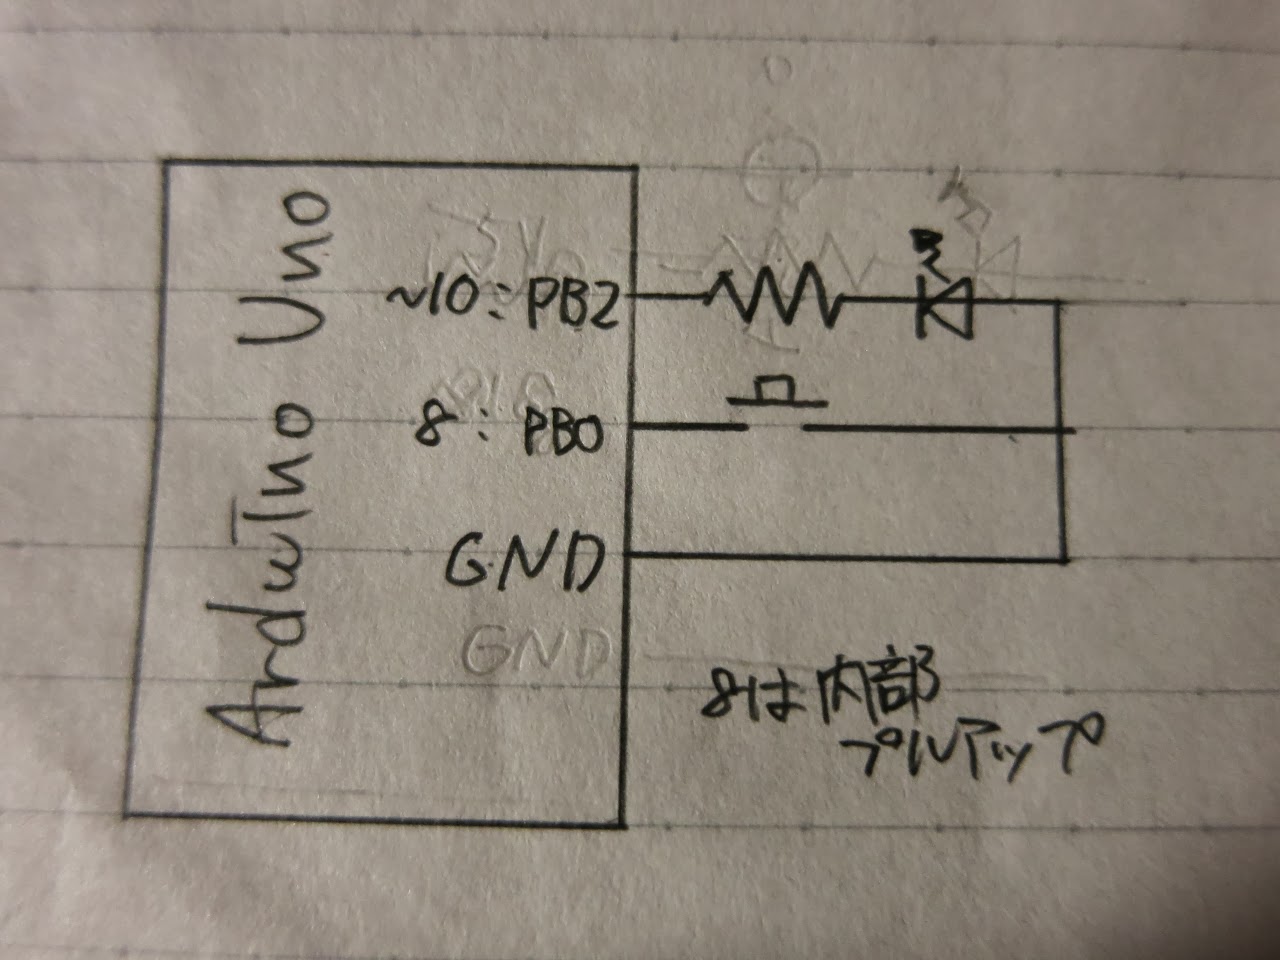 Arduino Uno
~10: PB2
8: PB0
GND
GND
8は内部
プルアップ